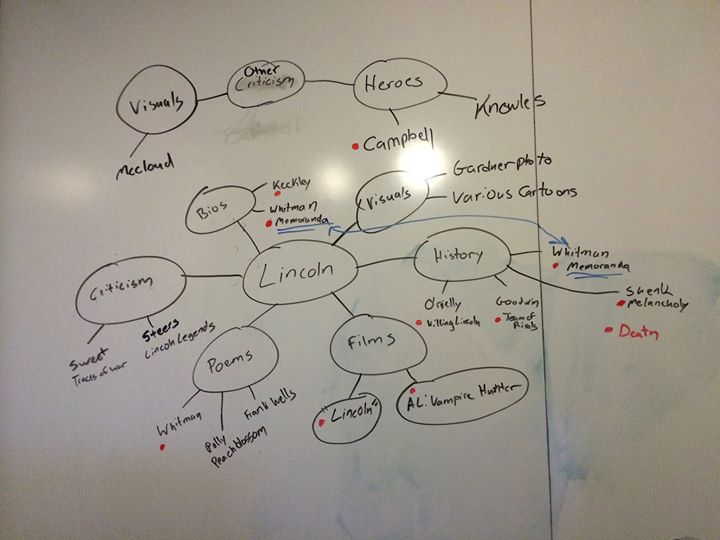 Visuals
Other
Criticism
Heroes
McCloud
Campbell
Knowles
Bios
Keckley
Whitman
Memoranda
Visuals
Gardner photo
Various Cartoons
Lincoln
History
Whitman
Memoranda
Shenk
Melancholy
Death
O'rielly
Killing Lincoln
Goodwin
Team of
Rivals
Criticism
Sweet
Traces of war
Steers
Lincoln Legends
Poems
Whitman
Polly
Peachblossom
Frank Wells
Films
"Lincoln"
AL: Vampire Hunter